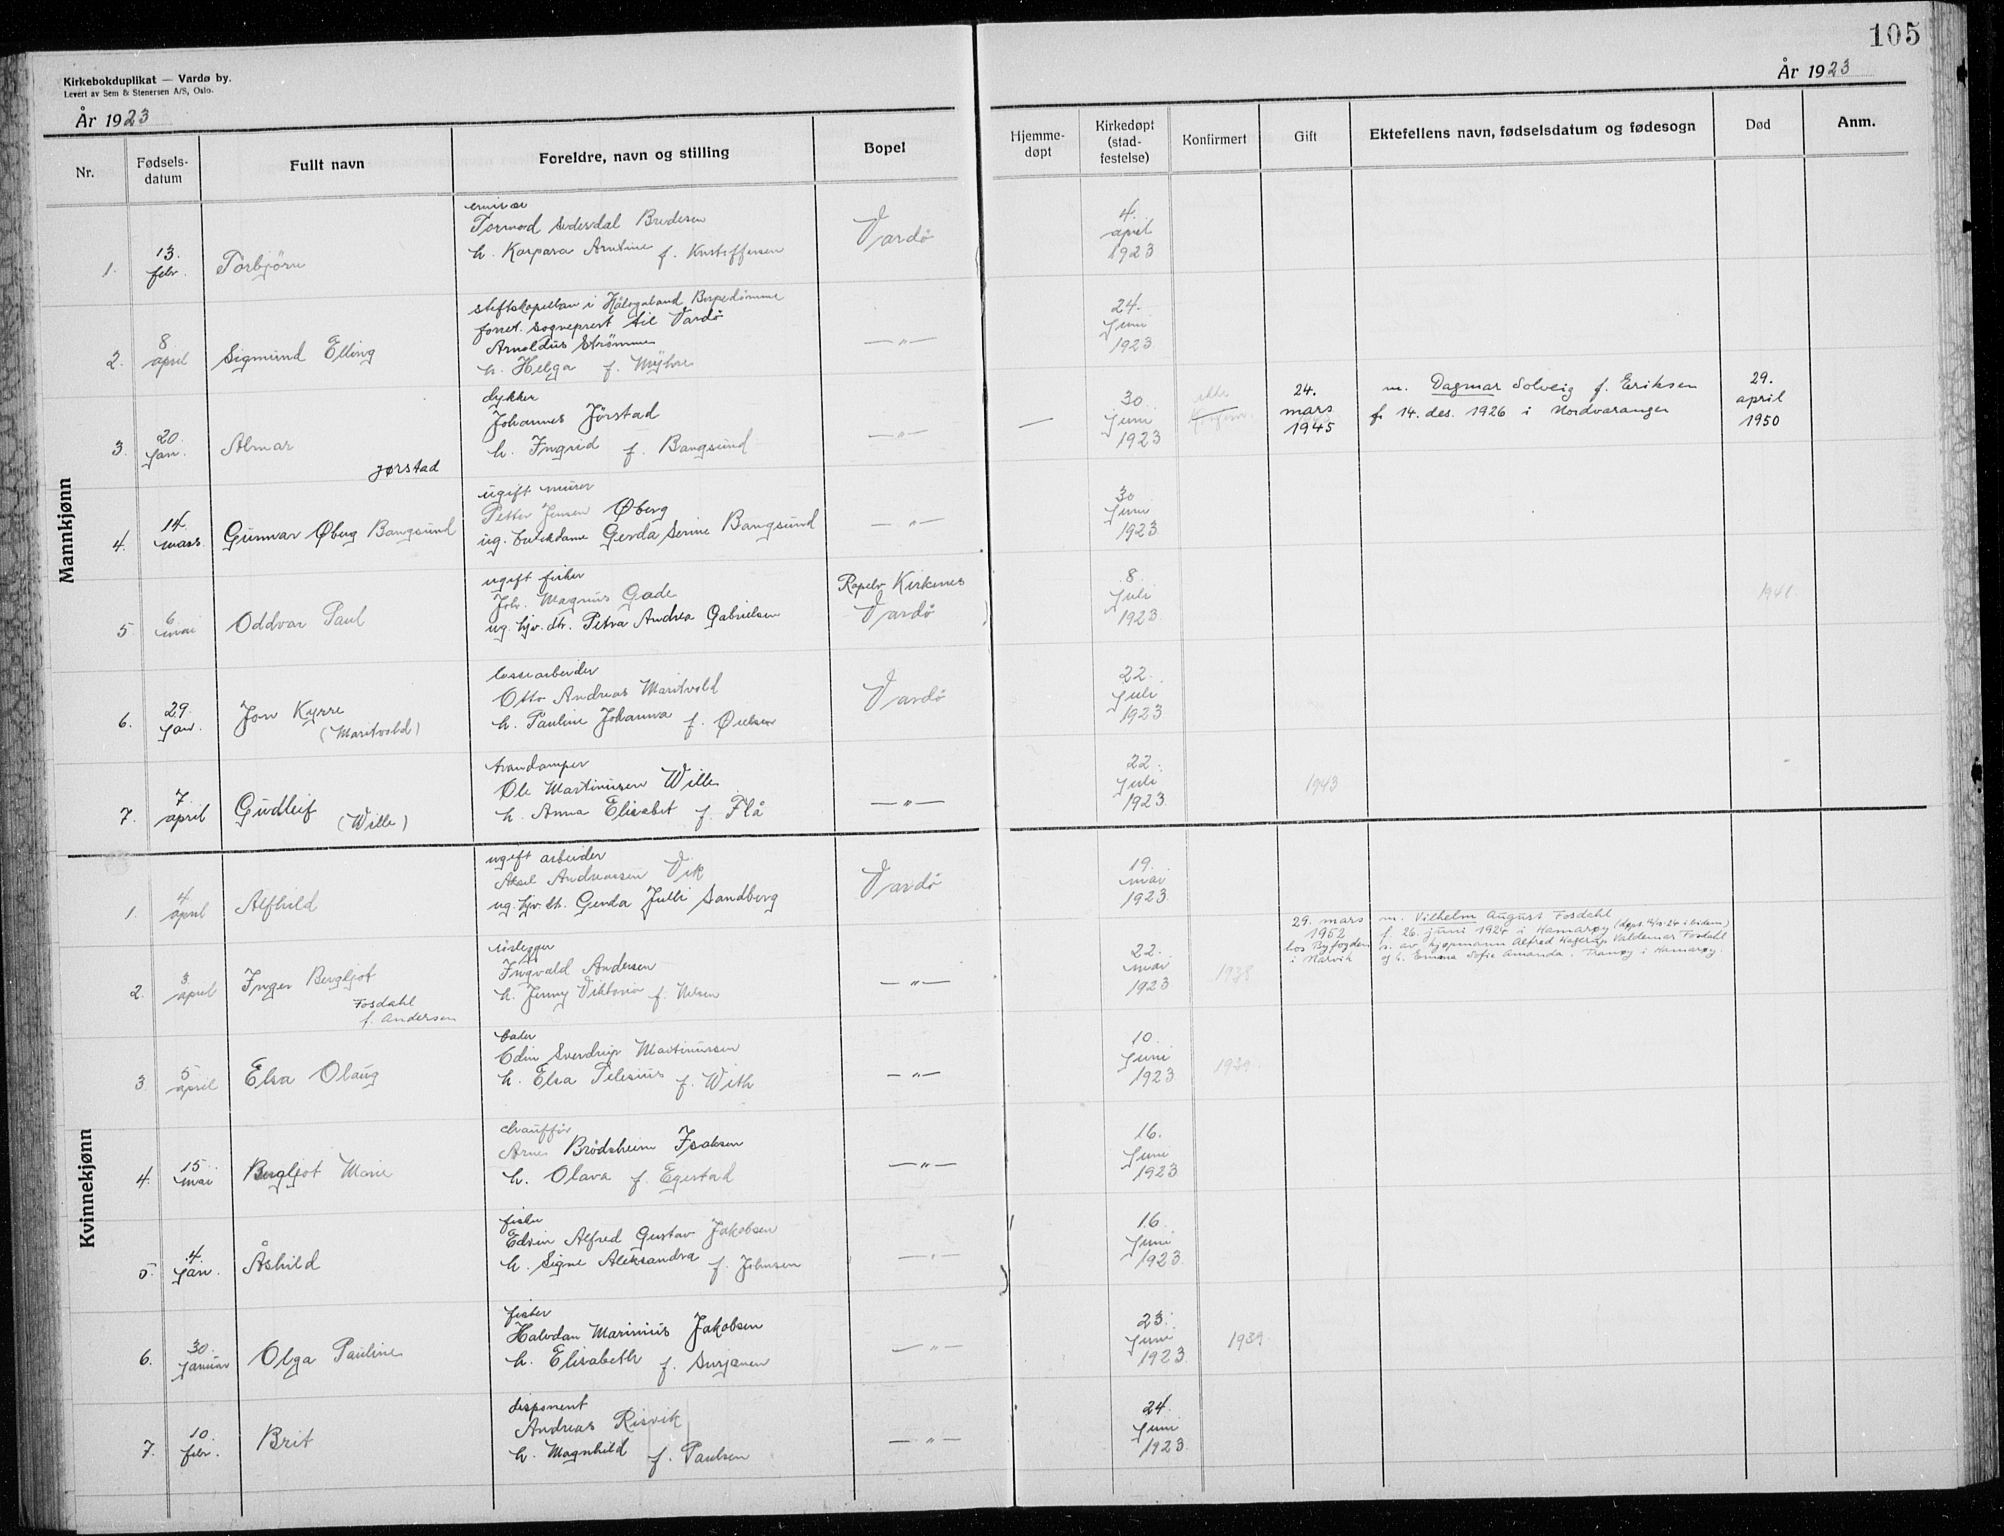 105
Kirkebokduplikat — Vardø by.
Levert av Sem & Stenersen A/S, Oslo.
År 1923
År 1923
Nr.
Fødsels-
datum
Fullt navn
Foreldre, navn og stilling
Bopel
Hjemme-
døpt
Kirkedøpt
(stad-
festelse)
Konfirmert
Gift
Ektefellens navn, fødselsdatum og fødesogn
Død
Anm.
Mannkjønn
1. 13. febr. Torbjörn
Tormod Bredesen
h. Kaspara Arntine f. Kristoffersen
Vardö
4. april 1923
2. 8 april Sigmund Elling
stiftskapellan i Hålogaland Bispedömme
forret. sogneprest til Vardö
Arnoldus Strömme
h. Helga f. Myhre
— " —
24. Juni 1923
3. 20. Jan. Almar
Jørstad
dykker
Johannes Jörstad
h. Ingrid f. Bangsund
— " —
—
30. Juni 1923
24. mars 1945
m. Dagmar Solveig f. Eriksen
f. 14. des. 1926 i Nordvaranger
29. april 1950
4. 14. mars. Gunnar Øberg Bangsund
ugift murer
Petter Jensen Øberg
ug. Gerda Serine Bangsund
— " —
30 Juni 1923
5 6. mai Oddvar Paul
ugift fisker
Joh. Magnus Gade
ug. hjv. dtr. Petra Andrea Gabrielsen
Kirkenes
Vardö
8. Juli 1923
1941.
6. 29. Jan. Jon Kyrre
(Maritvold)
lossearbeider
Otto Andreas Maritvold
h. Pauline Johanna f.
Vardö
22. Juli 1923
7. 7. april Gudleif (Wille)
trandamper
Ole Martinusen Wille
h. Anna Elisabet f. Flå
— " —
22. Juli 1923
1943
Kvinnekjønn
1. 4 april Alfhild
ugift arbeider
Aksel Andreassen Vik
ug. hjv. dt. Gerda Julli Sandberg
Vardö
19. mai 1923
2. 3. april Inger Bergljot
Fosdahl
f. Andersen
rörlegger
Ingvald Andersen
h. Jenny Viktoria f. Nilsen
— " —
22. mai 1923
1938
29. mars
1952
hos Byfogden
i Narvik
m. Vilhelm August Fosdahl
f. 26. juni 1924 i Hamarøy
s. av kjøpmann Alfred Hagerup Valdemar Fosdahl
og h. Emma Sofie Amanda, Tranøy i Hamarøy.
3 5 april Elsa Olaug
bader
Edin Sverdrup Martinussen
h. Elsa Pelesius f. With
— " —
10. Juni 1923
1939.
4. 15 mai Bergljot Marie
chaufför
Arne Brödsheim Isaksen
h. Olava f. Egestad
— " —
16. Juni 1923
5. 4. Jan. Åshild
fisker
Edvin Alfred Gustav Jakobsen
h. Signe Aleksandra f. Johnsen
— " —
16. Juni 1923
6. 30. Januar Olga Pauline
fisker
Halvdan Marinius Jakobsen
h. Elisabeth f.
— " —
23. Juni 1923
1939.
7. 10. febr. Brit
disponent
Andreas Risvik
h. Magnhild f. Paulsen
— " —
24. Juni 1923